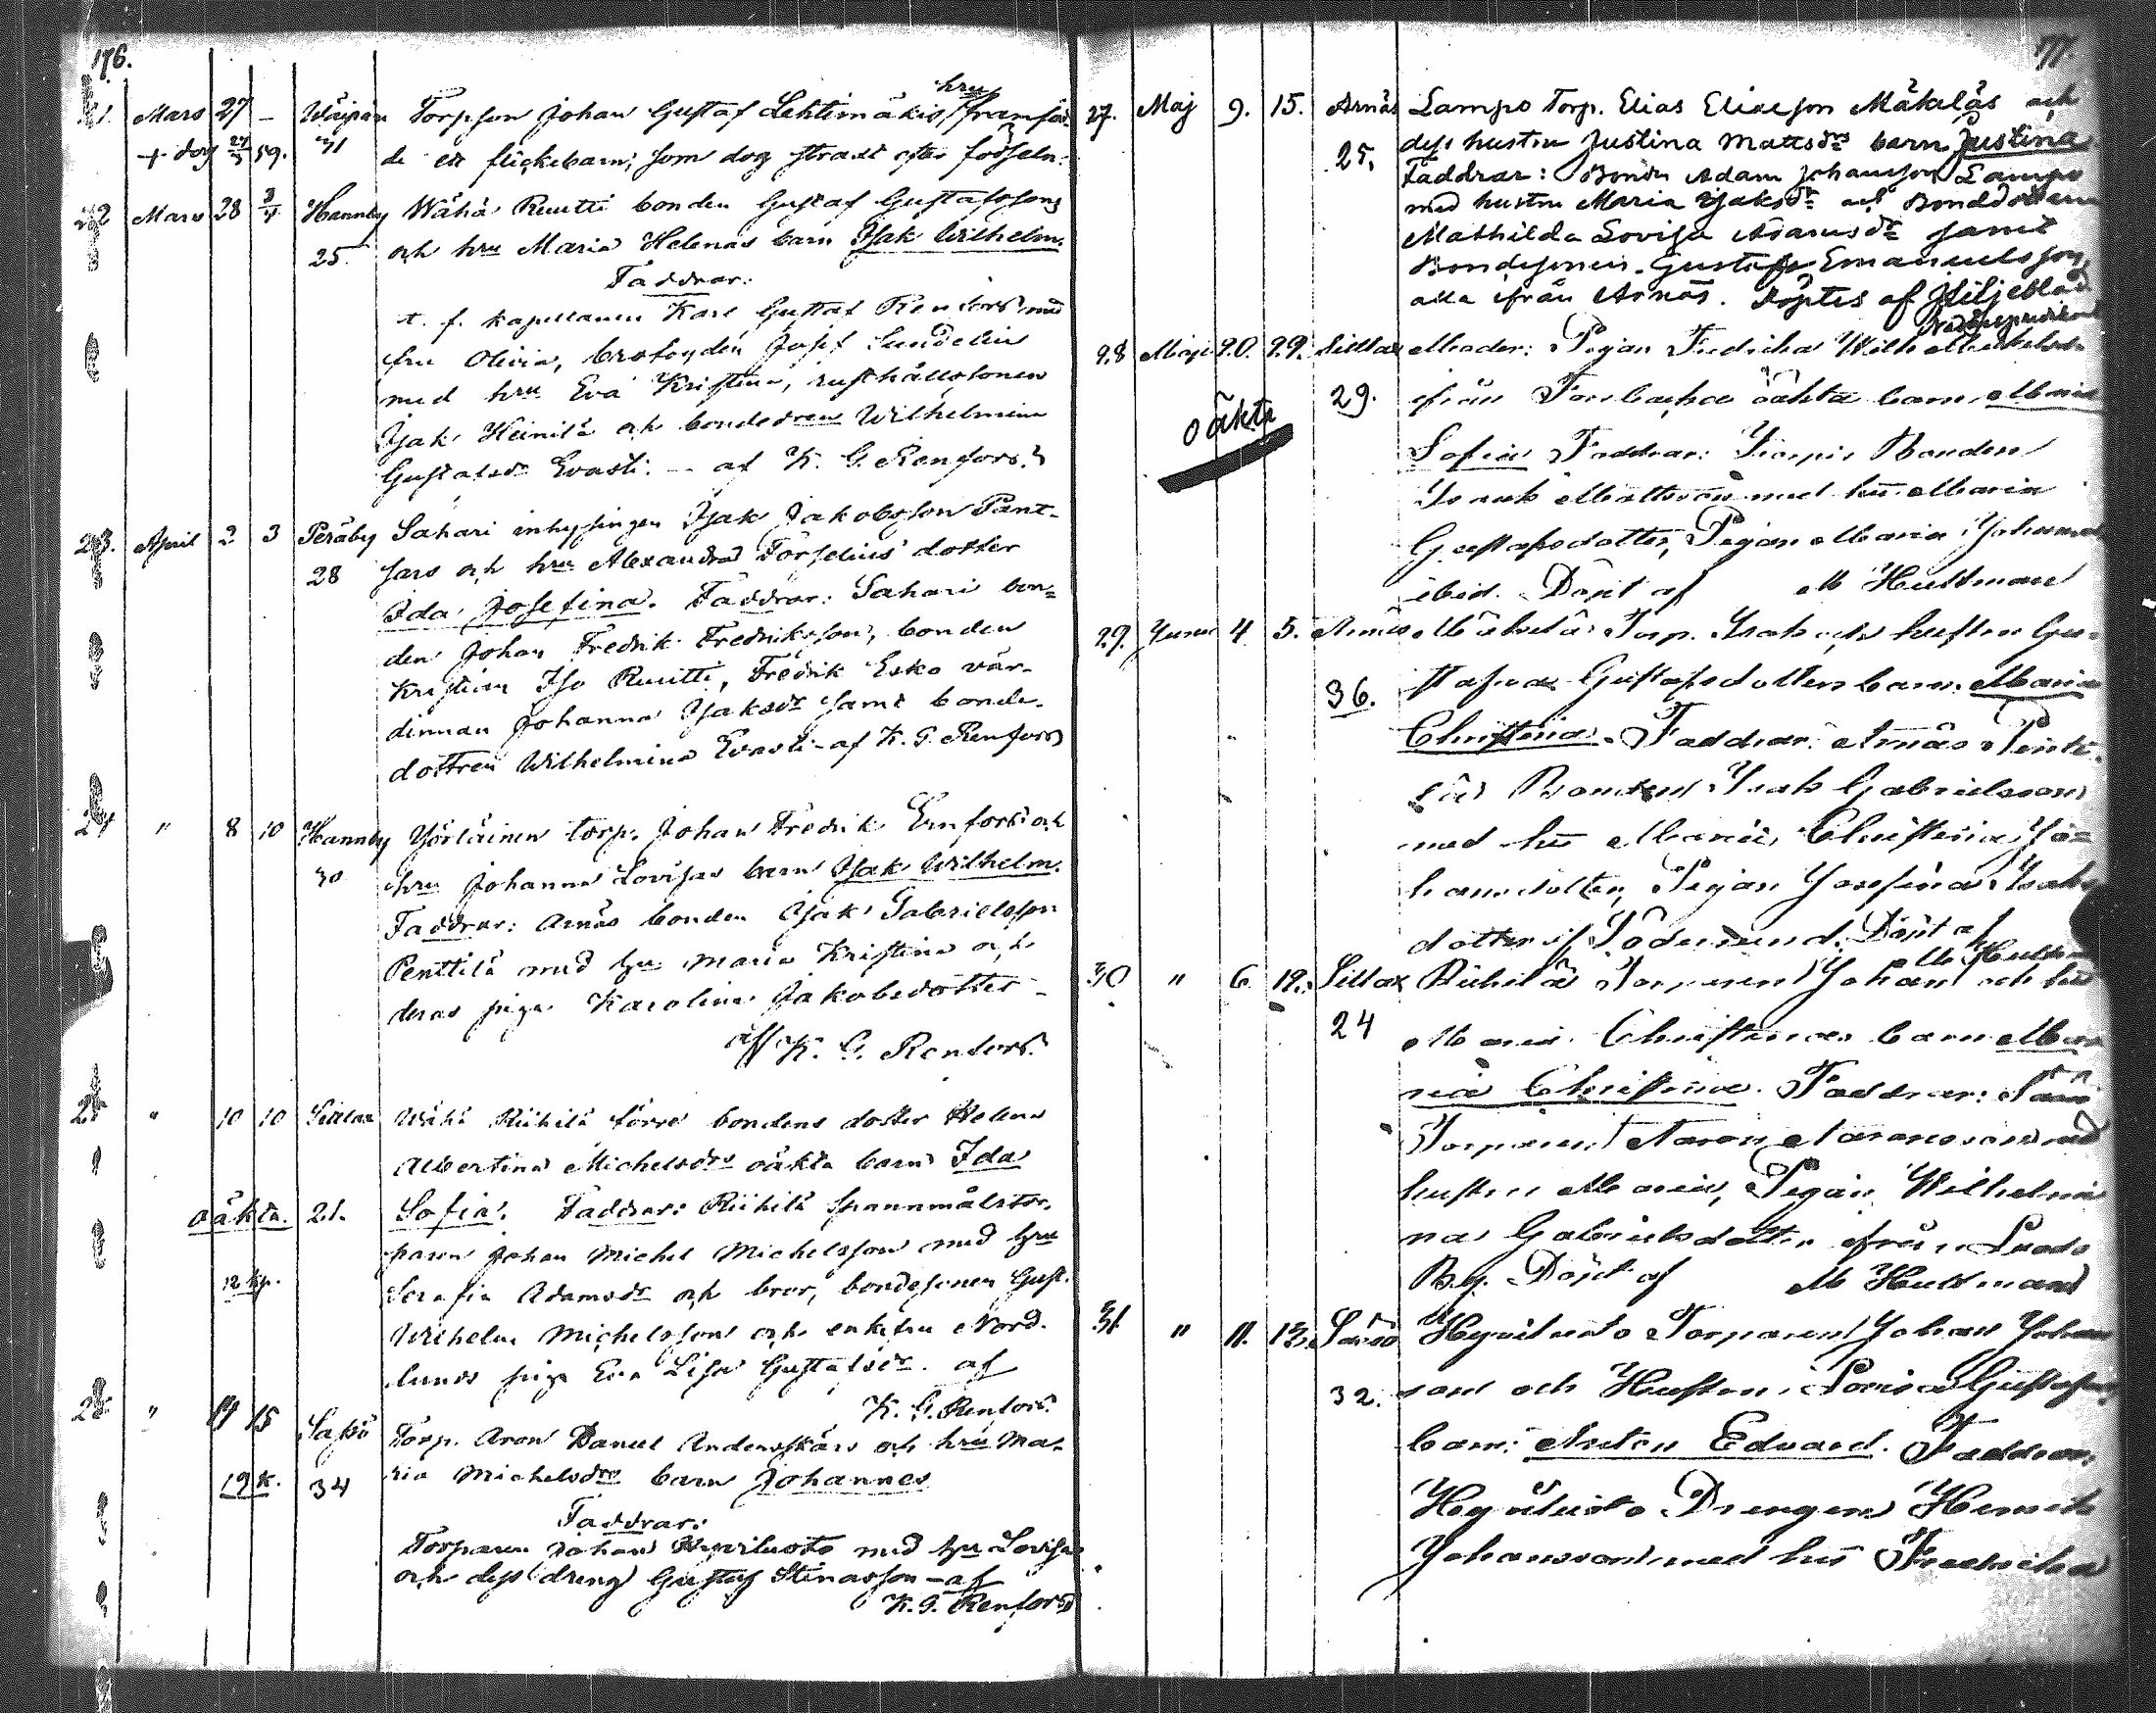 176.
21. Mars 27 – Wäipän Torpson Johan Gustaf Lehtimäkis hru framföd-
+ dog 27/3 59. 31 de ett flickebarn, som dog straxt efter födseln.
22 Mars 28 3/4 Hannby Wähä Ruutti bonden Gustaf Gustafssons
25. och hru Maria Helenas barn Isak Wilhelm.
Faddrar:
t. f. kapellanen Karl Gustaf Renfors med
fru Olivia, brofogden Josef Sundelin
med hru Eva Kristina, rusthållssonen
Isak Heinilä och bondedren Wilhelmina
Gustafsdr Evasti. — af K. G. Renfors.
23. April 2 3 Peräby Sahari inhysingen Isak Jakobsson Pant-
28 sars och hru Alexandra Torselius dotter
Ida Josefina. Faddrar: Sahari bon-
den Johan Fredrik Fredriksson, bonden
Kristian Iso Ruutti, Fredrik Esko vär-
dinnan Johanna Isaksdr samt bonde-
dottren Wilhelmina Evasti – af K. G. Renfors
24 " 8 10 Hannby Yörläinen torp. Johan Fredrik Ernfors och
30 hru Johanna Lovisas barn Isak Wilhelm.
Faddrar: Arnäs bonden Isak Gabrielsson
Penttilä med hu Maria Kristina och
deras piga Karolina Jakobsdotter –
af K. G. Renfors.
25 " 10 10 Sittlax Wähä Riihilä förre bondens dotter Helena
Albertina Michelsdrs oäkta barn Ida
oäkta. 21. Sofia. Faddrar: Riihilä spannmålstor-
paren Johan Michel Michelsson med hru
12 kp. Serafia Adamsdr och bror, bondesonen Gust.
Wilhelm Michelsson och enkefru Nord-
lunds piga Eva Lisa Gustafsdr. af
K. G. Renfors.
26 " 14 15 Saksö Torp. Aron Daniel Andersskärs och hru Ma-
19 k. 34 ria Michelsdrs barn Johannes
Faddrar:
Torparen Johan Hyviluoto med hu Lovisa
och dess dräng Gustaf Stinasson – af
K. G. Renfors
177.
27. Maj 9. 15. Arnäs Lampo Torp. Elias Eliasson Mäkeläs och
25. dess hustru Justina Mattsdrs barn Justina
Faddrar: Bonden Adam Johansson Lampo
med hustru Maria Isaksdr och Bonddottern
Mathilda Lovisa Asarusdr samt
Bondesonen Gustaf Emanuelsson,
alla ifrån Arnäs. Döptes af Hiljeblad
Nådårspredikant
28 Maji 20. 29. Sittlax Moder: Pigan Fredrika Wilh
oäkta 29. ifrån oäkta barn Maria
Sofia Faddrar: Bonden
Isaak Mattsson med hu Maria
Gustafsdotter, Pigan Maria Johansd
ibid. Döpt af M Hultman
29. Juni 4 5. Arnäs Mäkelä Torp. Isak och hustru Gu-
36. stafva Gustafsdotters barn Maria
Christina. Faddrar: Arnäs Pentti-
lä Bonden Isak Gabrielsson
med hu Maria Christina Jo-
hansdotter, Pigan Josefina Isaks
dotter if Söderlund. Döpt af
M Hultm
30 " 6 12. Sittlax Riihilä Torparen Johan och hu
24 Maria Christinas barn Ma-
ria Christina. Faddrar:
Torparen Aaron Aaronsson med
hustru Maria, Pigan Wilhelmi
na Gabrielsdotter ifrån
By. Döpt af M Hultman
31. " 11. 13. Saksö Hyviluoto Torparen Johan Johan
32. sons och Hustrun Lovisa Gustafs
barn: Anton Edvard. Faddrar:
Hyviluoto Drengen Henrik
Johansson med hu Fredrika